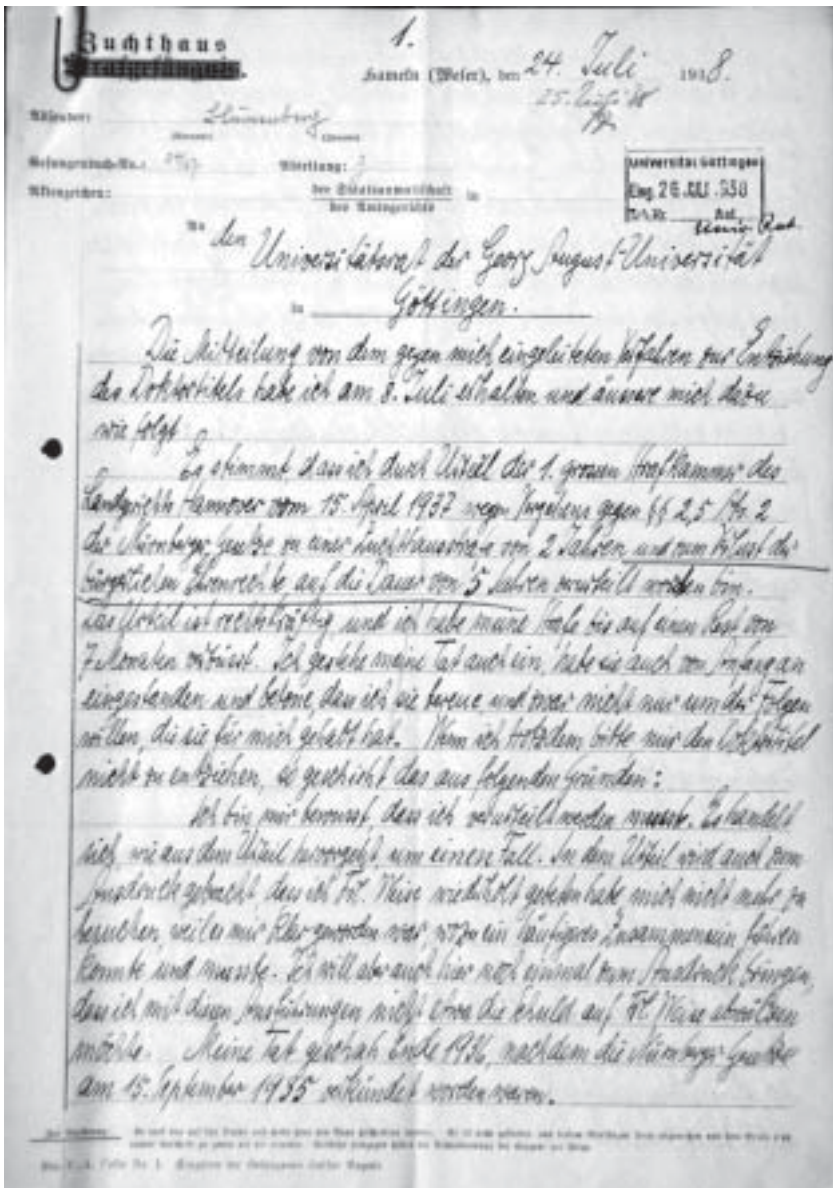 Zuchthaus
1.
Hameln (Weser), den 24. Juli 1938.
25. Juli 38
Absender:
Gefangenbuch-Nr.: Abteilung:
Aktenzeichen: der Staatsanwaltschaft in
des Amtsgerichts
Universität Göttingen
Eing. 26. JULI 1938
An den Universitätsrat der Georg August-Universität
in Göttingen.
Die Mitteilung von dem gegen mich eingeleiteten Verfahren zur Entziehung
des Doktortitels habe ich am 8. Juli erhalten und äussere mich dazu
wie folgt
Es stimmt, dass ich durch Urteil der 1. grossen Strafkammer des
Landgerichts Hannover vom 15. April 1937 wegen Vergehens gegen §§ 2,5 Abs. 2
der Nürnberger Gesetze zu einer Zuchthausstrafe von 2 Jahren und zum Verlust der
bürgerlichen Ehrenrechte auf die Dauer von 5 Jahren verurteilt worden bin.
Das Urteil ist rechtskräftig und ich habe meine Strafe bis auf einen Rest von
7 Monaten verbüsst. Ich gestehe meine Tat auch ein, habe sie auch von Anfang an
eingestanden und betone, dass ich sie bereue und zwar nicht nur um der Folgen
willen, die sie für mich gehabt hat. Wenn ich trotzdem bitte mir den Doktortitel
nicht zu entziehen, so geschieht das aus folgenden Gründen:
Ich bin mir bewusst, dass ich verurteilt werden musste. Es handelt
sich, wie aus dem Urteil hervorgeht, um einen Fall. In dem Urteil wird auch zum
Ausdruck gebracht, dass ich Frl. Weise wiederholt gebeten habe mich nicht mehr zu
besuchen, weil es mir klar geworden war, wozu ein häufigeres Zusammensein führen
konnte und musste. Ich will aber auch hier noch einmal zum Ausdruck bringen,
dass ich mit diesen Ausführungen nicht etwa die Schuld auf Frl. Weise abwälzen
möchte. Meine Tat geschah Ende 1936, nachdem die Nürnberger Gesetze
am 15. September 1935 verkündet worden waren.